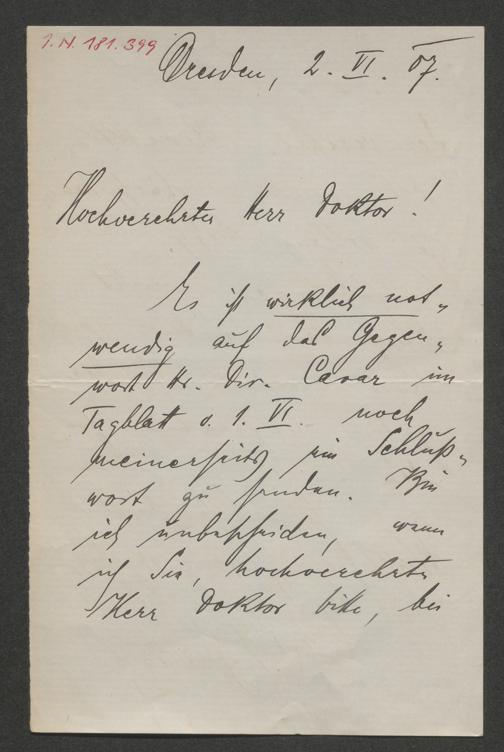 I. N. 181.399
Dresden, 2. VI. 07.
Hochverehrter Herr Doktor!
Es ist wirklich not-
wendig auf das Gegen-
wort Hr. Dir. Cavar im
Tagblatt v. 1. VI. noch
meinerseits ein Schluß-
wort zu senden. Bin
ich unbescheiden, wenn
ich Sie, hochverehrter
Herr Doktor bitte, bei